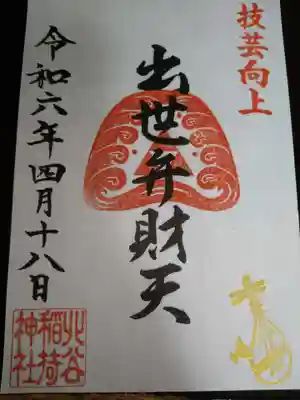 技芸向上
出世弁財天
令和六年四月十八日
北谷
稲荷
神社